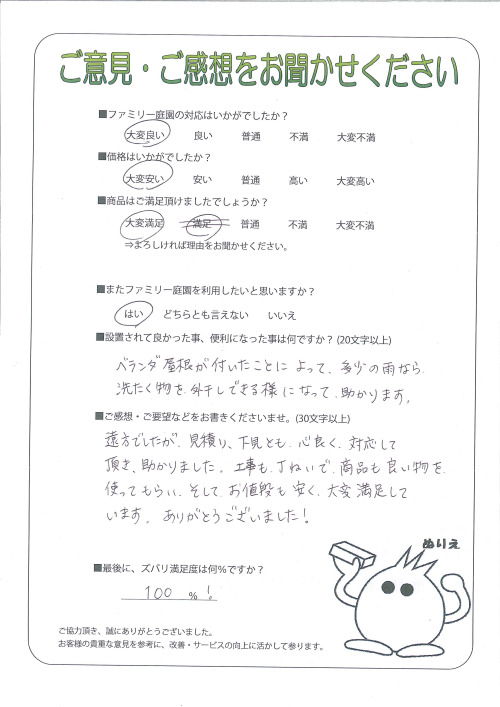 ご意見・ご感想をお聞かせください
■ファミリー庭園の対応はいかがでしたか？
大変良い 良い 普通 不満 大変不満
■価格はいかがでしたか？
大変安い 安い 普通 高い 大変高い
■商品はご満足頂けましたでしょうか？
大変満足 満足 普通 不満 大変不満
⇒よろしければ理由をお聞かせください。
■またファミリー庭園を利用したいと思いますか？
はい どちらとも言えない いいえ
■設置されて良かった事、便利になった事は何ですか？(20文字以上)
ベランダ屋根が付いたことによって、多少の雨なら
洗たく物を外干しできる様になって、助かります。
■ご感想・ご要望などをお書きくださいませ。(30文字以上)
遠方でしたが、見積り、下見とも、心良く、対応して
頂き、助かりました。工事も、丁ねいで、商品も良い物を
使ってもらい、そして、お値段も安く、大変満足して
います。ありがとうございました！
ぬりえ
■最後に、ズバリ満足度は何%ですか？
100 %！。
ご協力頂き、誠にありがとうございました。
お客様の貴重な意見を参考に、改善・サービスの向上に活かして参ります。